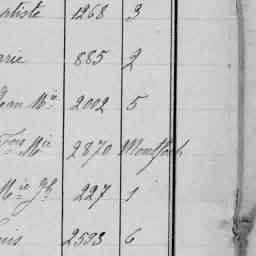 aptiste 1268 3
arie 885 2
Jean Mie 2002 5
Fois Mie 2870 Montfort
Mie Jh 227 1
uis 2533 6